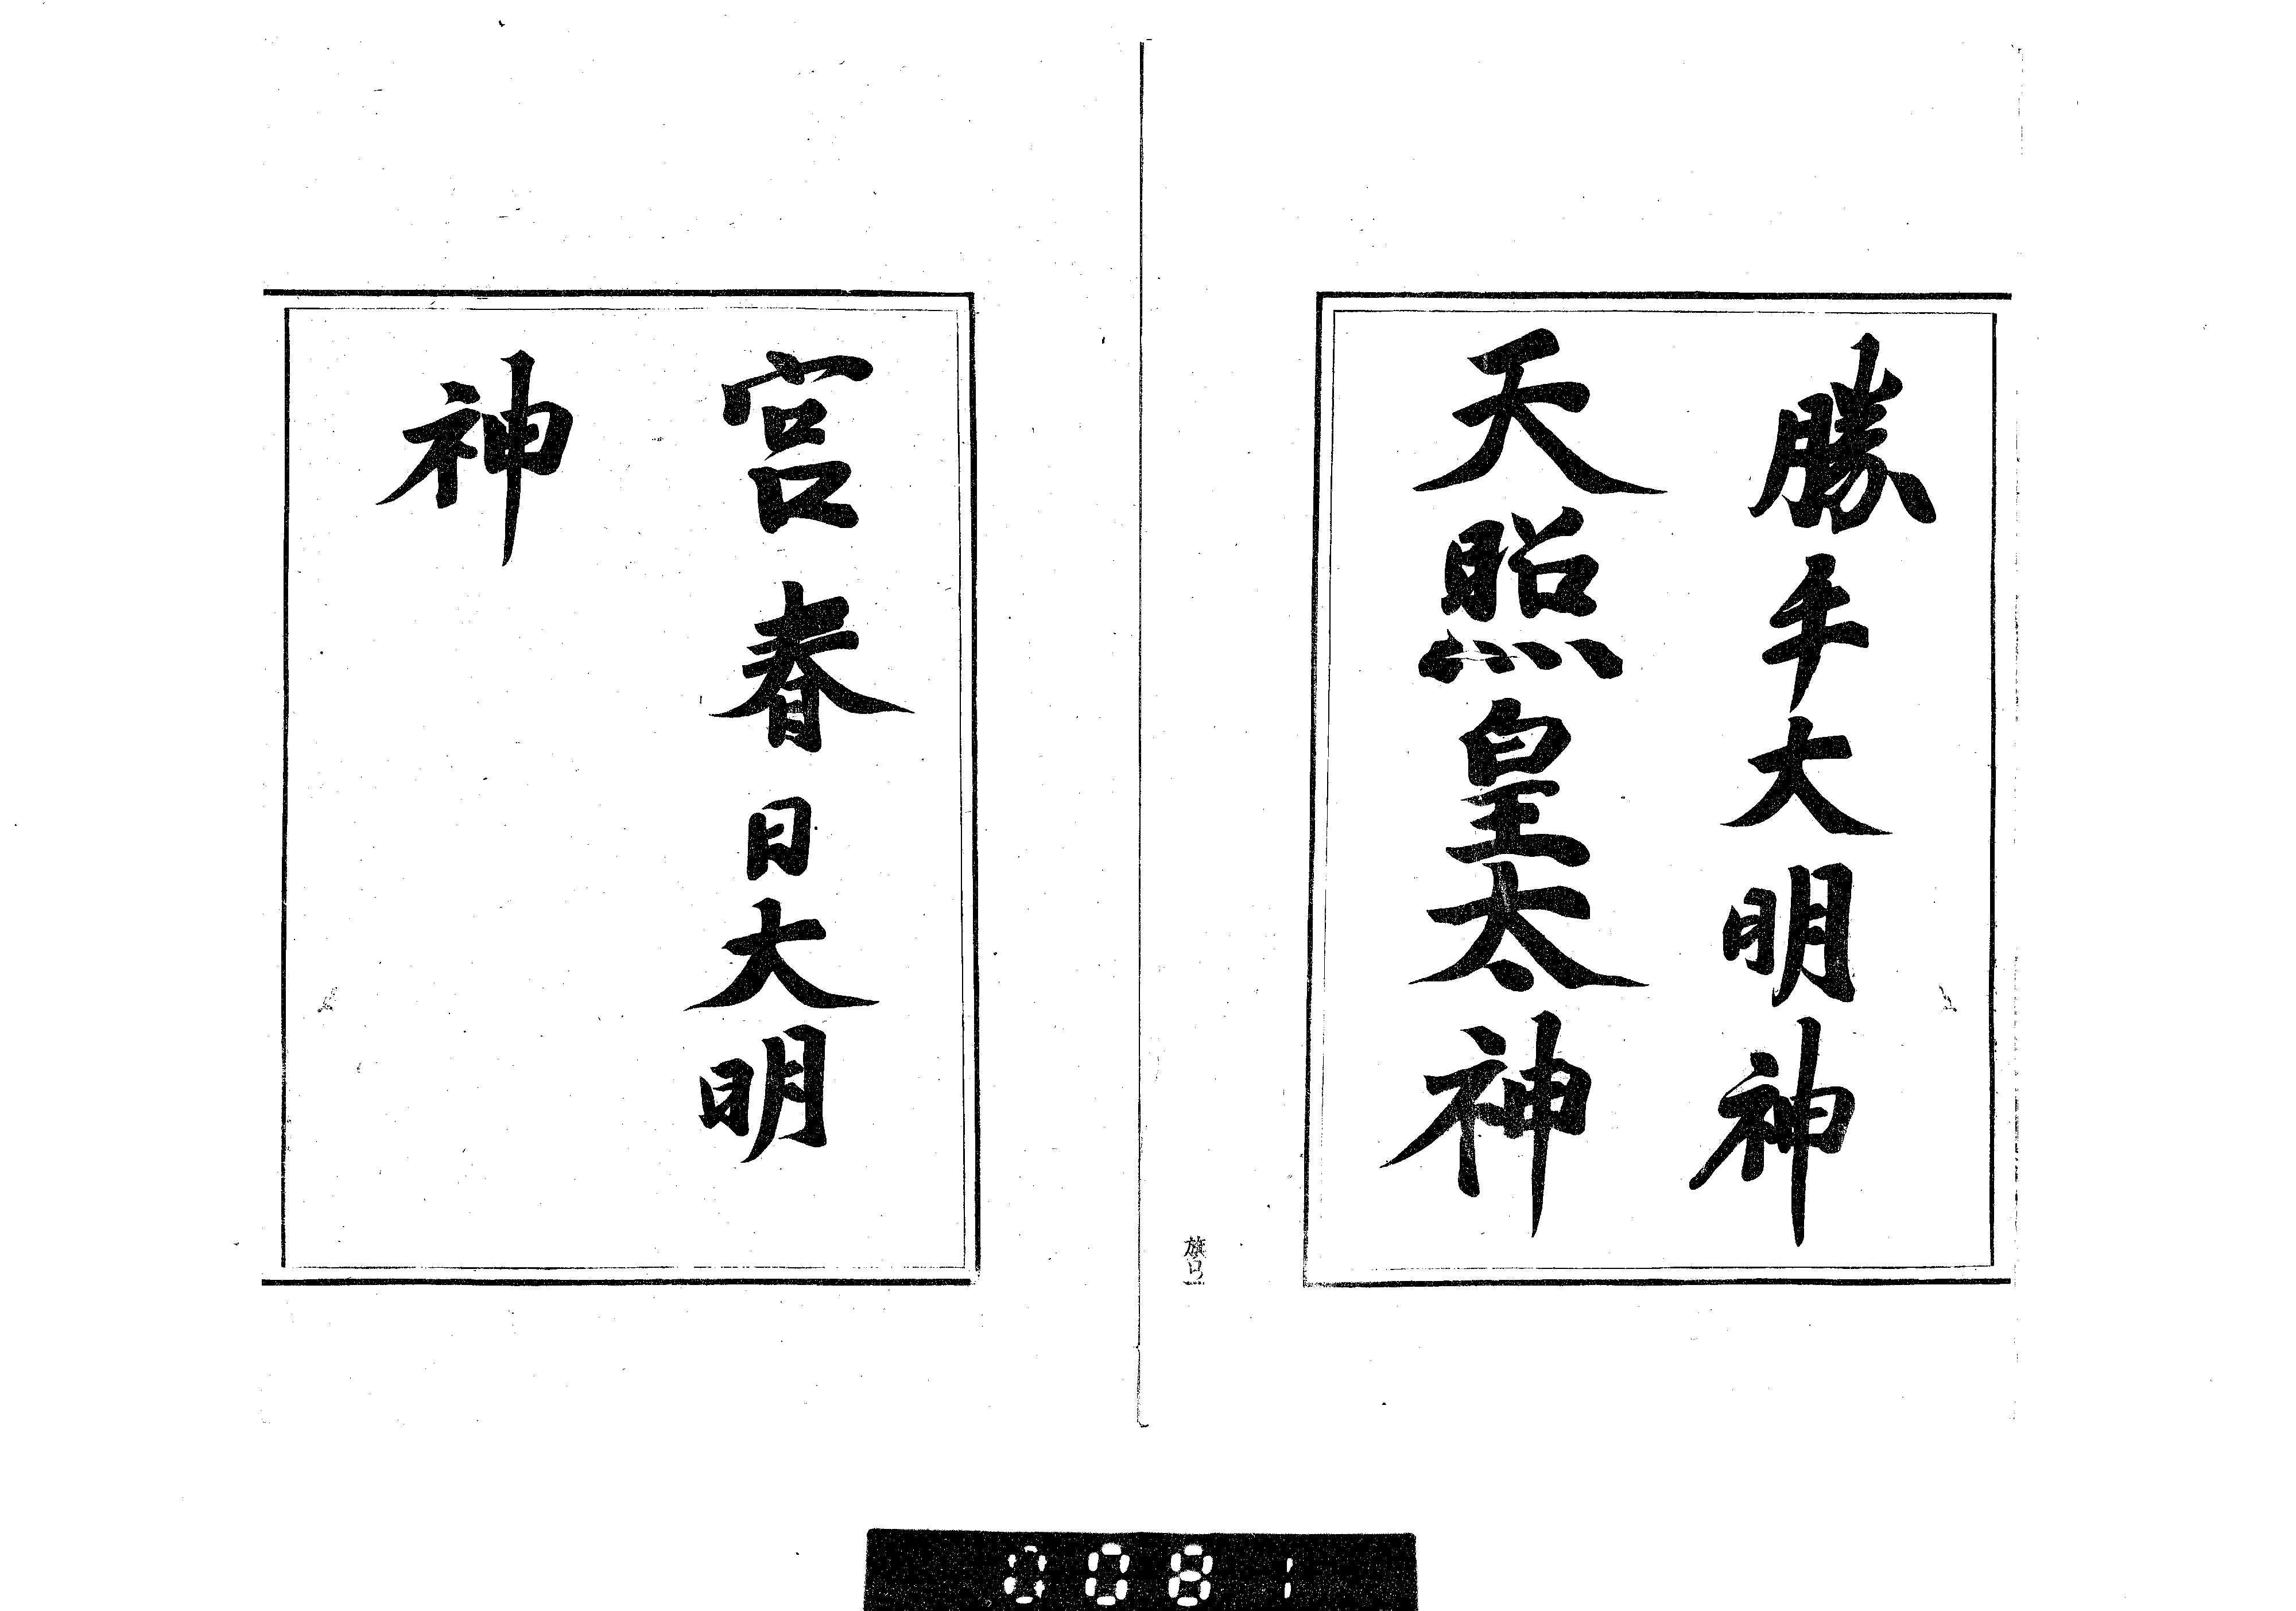 勝手大明神
天照皇太神
宮春日大明
神
旗弓一
0081